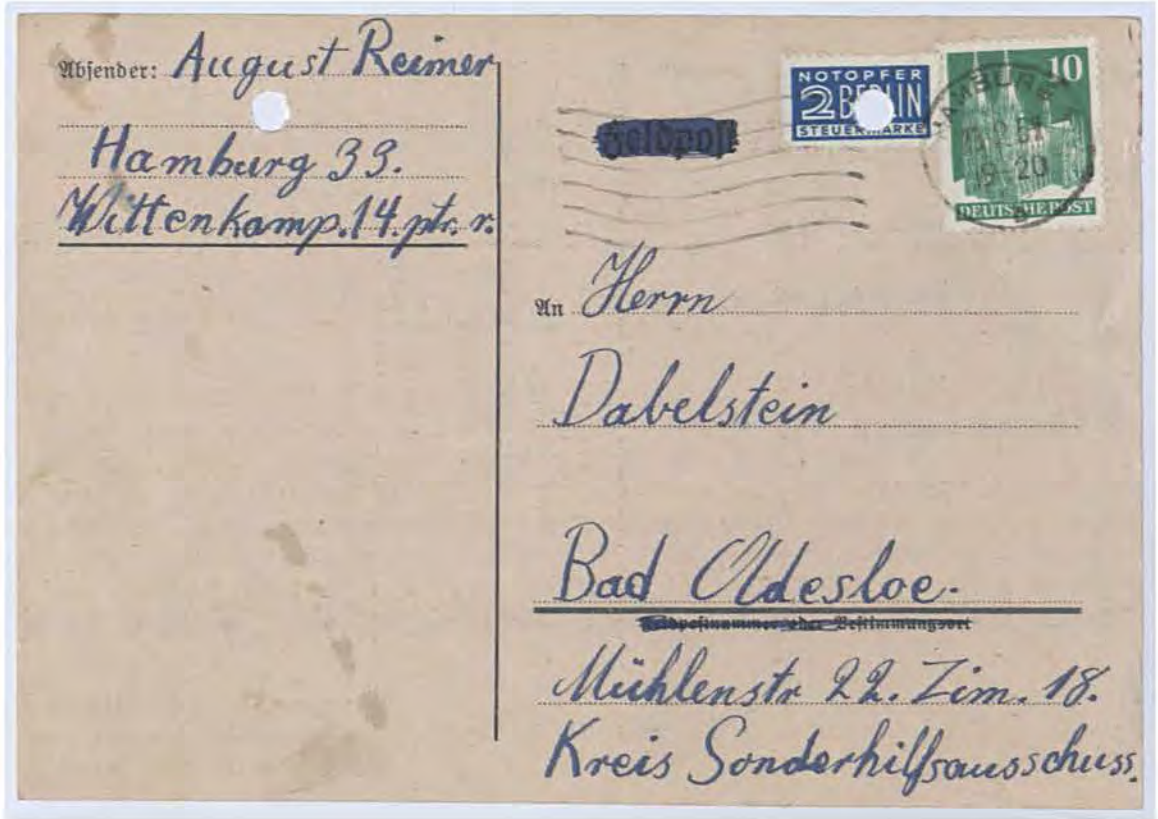 Absender: August Reimer
Hamburg 33.
Wittenkamp.14.ptr. r.
Feldpost
NOTOPFER
2 BERLIN
STEUERMARKE
10
DEUTSCHE POST
HAMBURG
19-20
An Herrn
Dabelstein
Bad Oldesloe.
Feldpostnummer oder Bestimmungsort
Mühlenstr 22. Zim. 18.
Kreis Sonderhilfsausschuss.